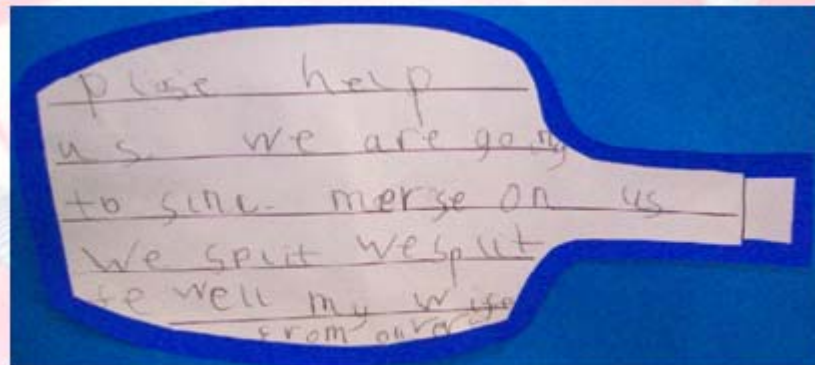 plise help
us. we are going
to sinc. merse on us
We split We split
fe well my wife
from our